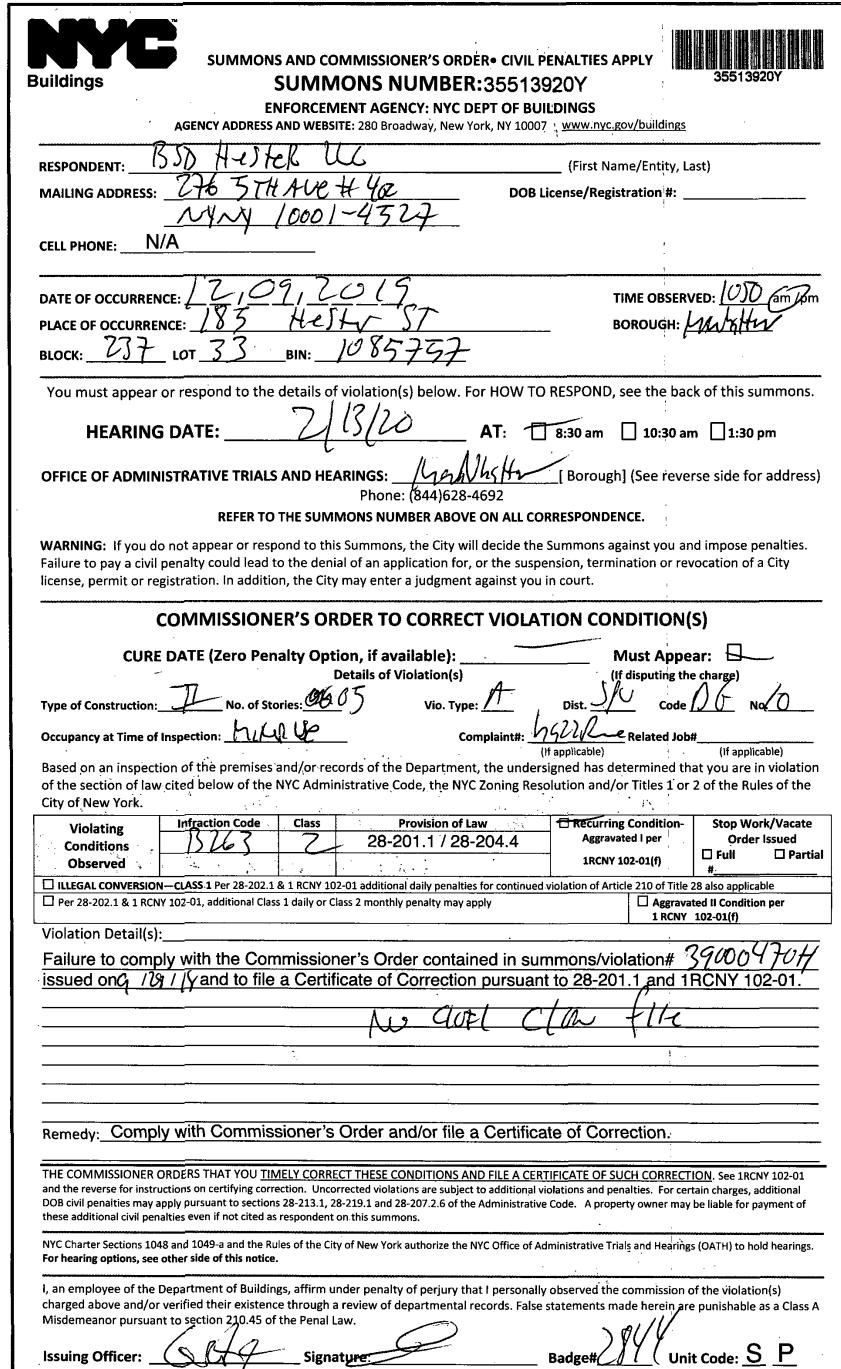 NYC
Buildings
SUMMONS AND COMMISSIONER'S ORDER• CIVIL PENALTIES APPLY
35513920Y
SUMMONS NUMBER:35513920Y
ENFORCEMENT AGENCY: NYC DEPT OF BUILDINGS
AGENCY ADDRESS AND WEBSITE: 280 Broadway, New York, NY 10007 www.nyc.gov/buildings
RESPONDENT: BSD Hester LLC (First Name/Entity, Last)
MAILING ADDRESS: 276 5TH AVE # 402 DOB License/Registration #:
NY NY 10001-4527
CELL PHONE: N/A
DATE OF OCCURRENCE: 12,09,2019 TIME OBSERVED: 1050 am/pm
PLACE OF OCCURRENCE: 185 Hester ST BOROUGH: Manhattan
BLOCK: 237 LOT 33 BIN: 1085757
You must appear or respond to the details of violation(s) below. For HOW TO RESPOND, see the back of this summons.
HEARING DATE: 2/13/20 AT: 8:30 am 10:30 am 1:30 pm
OFFICE OF ADMINISTRATIVE TRIALS AND HEARINGS: Manhattan [ Borough] (See reverse side for address)
Phone: (844)628-4692
REFER TO THE SUMMONS NUMBER ABOVE ON ALL CORRESPONDENCE.
WARNING: If you do not appear or respond to this Summons, the City will decide the Summons against you and impose penalties.
Failure to pay a civil penalty could lead to the denial of an application for, or the suspension, termination or revocation of a City
license, permit or registration. In addition, the City may enter a judgment against you in court.
COMMISSIONER'S ORDER TO CORRECT VIOLATION CONDITION(S)
CURE DATE (Zero Penalty Option, if available): Must Appear:
Details of Violation(s) (If disputing the charge)
Type of Construction: II No. of Stories: 05 Vio. Type: A Dist. Code No. 10
Occupancy at Time of Inspection: Complaint#: Related Job#
(If applicable) (If applicable)
Based on an inspection of the premises and/or records of the Department, the undersigned has determined that you are in violation
of the section of law cited below of the NYC Administrative Code, the NYC Zoning Resolution and/or Titles 1 or 2 of the Rules of the
City of New York.
Violating Conditions Observed
Infraction Code B263
Class 2
Provision of Law 28-201.1 / 28-204.4
Recurring Condition- Aggravated I per 1RCNY 102-01(f)
Stop Work/Vacate Order Issued Full Partial #
ILLEGAL CONVERSION—CLASS 1 Per 28-202.1 & 1 RCNY 102-01 additional daily penalties for continued violation of Article 210 of Title 28 also applicable
Per 28-202.1 & 1 RCNY 102-01, additional Class 1 daily or Class 2 monthly penalty may apply
Aggravated II Condition per
1 RCNY 102-01(f)
Violation Detail(s):
Failure to comply with the Commissioner's Order contained in summons/violation# 39000470H
issued on and to file a Certificate of Correction pursuant to 28-201.1 and 1RCNY 102-01.
Remedy: Comply with Commissioner's Order and/or file a Certificate of Correction.
THE COMMISSIONER ORDERS THAT YOU TIMELY CORRECT THESE CONDITIONS AND FILE A CERTIFICATE OF SUCH CORRECTION. See 1RCNY 102-01
and the reverse for instructions on certifying correction. Uncorrected violations are subject to additional violations and penalties. For certain charges, additional
DOB civil penalties may apply pursuant to sections 28-213.1, 28-219.1 and 28-207.2.6 of the Administrative Code. A property owner may be liable for payment of
these additional civil penalties even if not cited as respondent on this summons.
NYC Charter Sections 1048 and 1049-a and the Rules of the City of New York authorize the NYC Office of Administrative Trials and Hearings (OATH) to hold hearings.
For hearing options, see other side of this notice.
I, an employee of the Department of Buildings, affirm under penalty of perjury that I personally observed the commission of the violation(s)
charged above and/or verified their existence through a review of departmental records. False statements made herein are punishable as a Class A
Misdemeanor pursuant to section 210.45 of the Penal Law.
Issuing Officer: Signature: Badge# 2844 Unit Code: S P